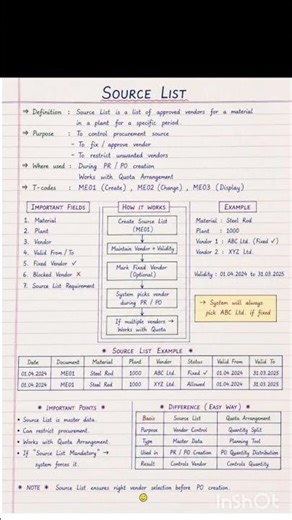 SOURCE LIST
→ Definition : Source List is a list of approved vendors for a material
in a plant for a specific period.
→ Purpose : - To control procurement source
- To fix / approve vendor
- To restrict unwanted vendors
→ Where used : During PR / PO creation
Works with Quota Arrangement
→ T-codes : ME01 (Create), ME02 (Change), ME03 (Display)
IMPORTANT FIELDS
1. Material
2. Plant
3. Vendor
4. Valid From / To
5. Fixed Vendor ✓
6. Blocked Vendor ✗
7. Source List Requirement
HOW IT WORKS
Create Source List
(ME01)
Maintain Vendor + Validity
Mark Fixed Vendor
(Optional)
System picks vendor
during PR / PO
If multiple vendors →
Works with Quota
EXAMPLE
Material : Steel Rod
Plant : 1000
Vendor 1 : ABC Ltd. (Fixed ✓)
Vendor 2 : XYZ Ltd.
Validity : 01.04.2024 to 31.03.2025
→ System will always
pick ABC Ltd. if fixed
* SOURCE LIST EXAMPLE *
Date Document Material Plant Vendor Status Valid From Valid To
01.04.2024 ME01 Steel Rod 1000 ABC Ltd. Fixed ✓ 01.04.2024 31.03.2025
01.04.2024 ME01 Steel Rod 1000 XYZ Ltd. Allowed 01.04.2024 31.03.2025
* IMPORTANT POINTS *
• Source List is master data.
• Can restrict procurement.
• Works with Quota Arrangement.
• If "Source List Mandatory" →
system forces it.
* DIFFERENCE (EASY WAY) *
Basis Source List Quota Arrangement
Purpose Vendor Control Quantity Split
Type Master Data Planning Tool
Used in PR / PO Creation PO Quantity Distribution
Result Controls Vendor Controls Quantity
* NOTE * Source List ensures right vendor selection before PO creation.
InShOt